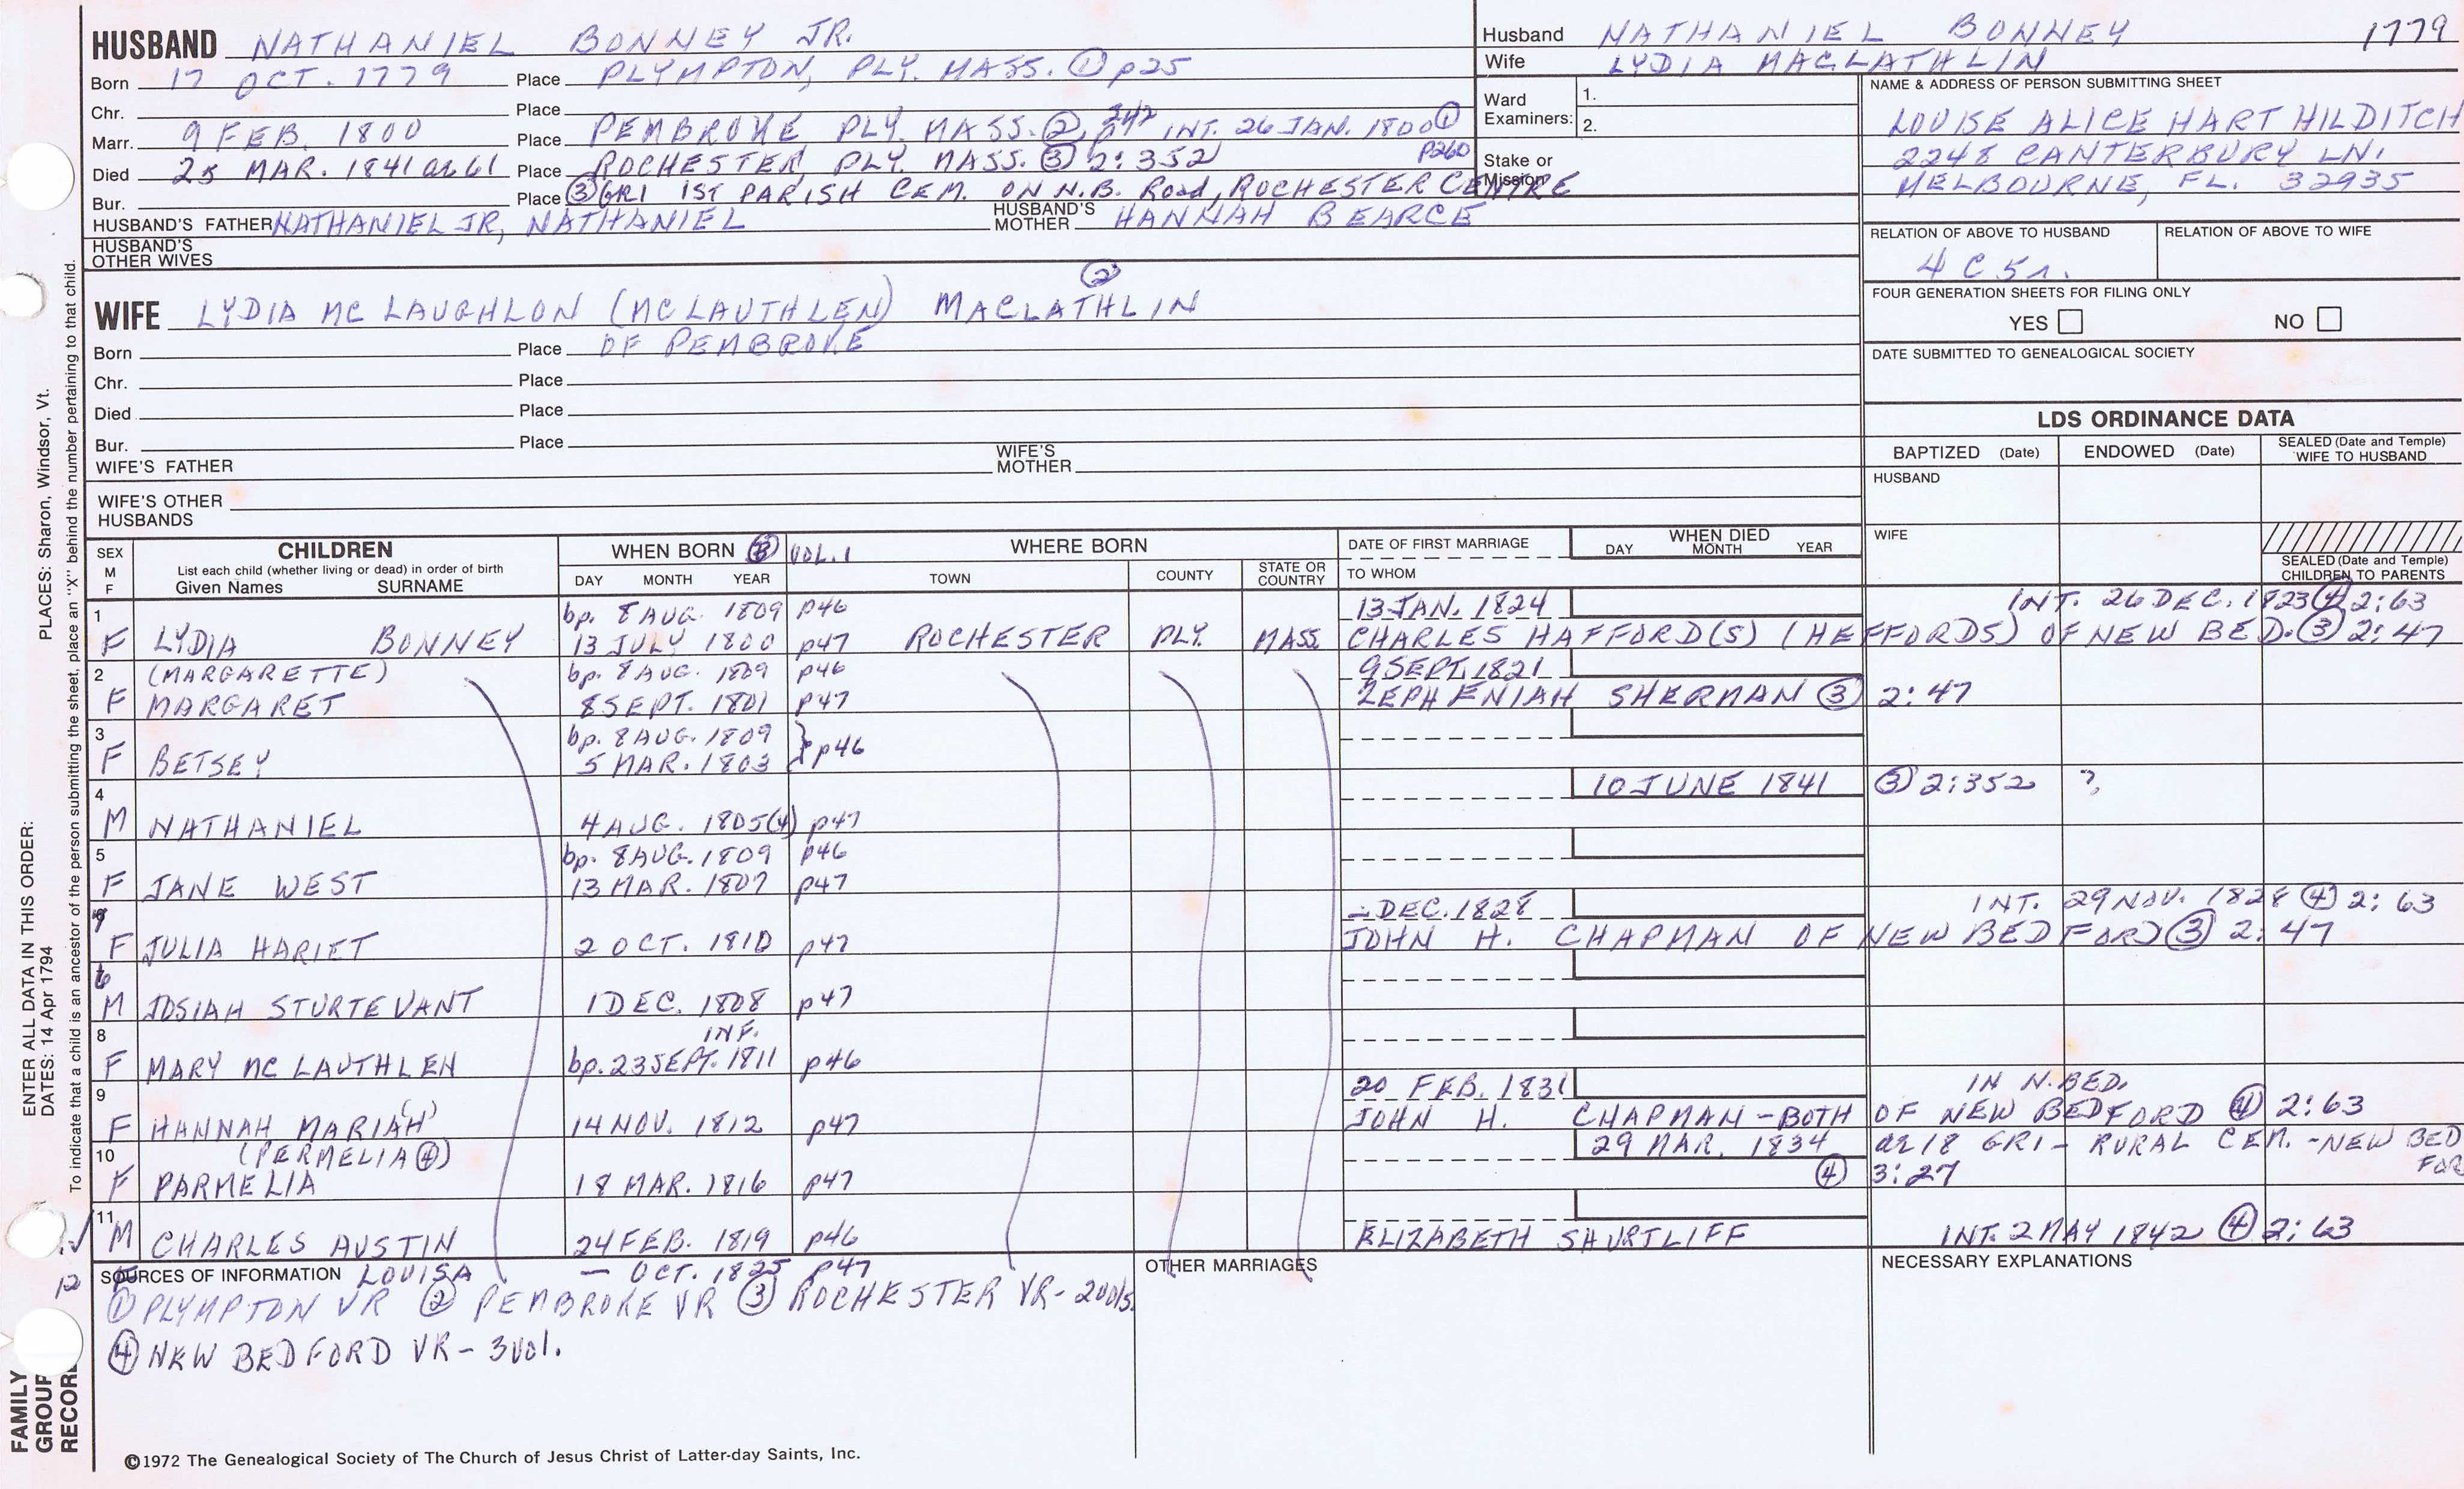 HUSBAND NATHANIEL BONNEY JR.
Born 17 OCT. 1779 Place PLYMPTON, PLY. MASS. ① p25
Chr. Place
Marr. 9 FEB. 1800 Place PEMBROKE PLY. MASS. ②, p242 INT. 26 JAN. 1800 ① P260
Died 25 MAR. 1841 ae 61 Place ROCHESTER, PLY. MASS. ③ 2:352
Bur. Place ③ GR1 1ST PARISH CEM. ON N.B. Road, ROCHESTER CENTRE
HUSBAND'S FATHER NATHANIEL JR, NATHANIEL HUSBAND'S MOTHER HANNAH BEARCE
HUSBAND'S OTHER WIVES
Husband NATHANIEL BONNEY 1779
Wife LYDIA MACLATHLIN
Ward Examiners: 1.
2.
Stake or Mission
NAME & ADDRESS OF PERSON SUBMITTING SHEET
LOUISE ALICE HART HILDITCH
2248 CANTERBURY LN.
MELBOURNE, FL. 32935
RELATION OF ABOVE TO HUSBAND RELATION OF ABOVE TO WIFE
4 C 5r.
FOUR GENERATION SHEETS FOR FILING ONLY
YES NO
DATE SUBMITTED TO GENEALOGICAL SOCIETY
②
WIFE LYDIA MC LAUGHLON (MCLAUTHLEN) MACLATHLIN
Born Place OF PEMBROKE
Chr. Place
Died Place
Bur. Place
WIFE'S FATHER WIFE'S MOTHER
WIFE'S OTHER HUSBANDS
LDS ORDINANCE DATA
BAPTIZED (Date) ENDOWED (Date) SEALED (Date and Temple) WIFE TO HUSBAND
HUSBAND
WIFE
SEALED (Date and Temple) CHILDREN TO PARENTS
SEX M F CHILDREN WHEN BORN ③ VOL. 1 WHERE BORN DATE OF FIRST MARRIAGE WHEN DIED
List each child (whether living or dead) in order of birth
Given Names SURNAME DAY MONTH YEAR TOWN COUNTY STATE OR COUNTRY TO WHOM DAY MONTH YEAR
1 bp. 8 AUG. 1809 p46 13 JAN. 1824 INT. 26 DEC. 1823 ④ 2:63
F LYDIA BONNEY 13 JULY 1800 p47 ROCHESTER PLY. MASS. CHARLES HAFFORD(S) (HEFFORDS) OF NEW BED. ③ 2:47
2 (MARGARETTE) bp. 8 AUG. 1809 p46 9 SEPT. 1821
F MARGARET 8 SEPT. 1801 p47 ZEPHENIAH SHERMAN ③ 2:47
3 bp. 8 AUG. 1809 } p46
F BETSEY 5 MAR. 1803
4 10 JUNE 1841 ③ 2:352 ?
M NATHANIEL 4 AUG. 1805 (4) p47
5 bp. 8 AUG. 1809 p46
F JANE WEST 13 MAR. 1807 p47
7 – DEC. 1828 INT. 29 NOV. 1828 ④ 2:63
F JULIA HARIET 2 OCT. 1810 p47 JOHN H. CHAPMAN OF NEW BEDFORD ③ 2:47
6
M JOSIAH STURTEVANT 1 DEC. 1808 p47
8 INF.
F MARY MC LAUTHLEN bp. 23 SEPT. 1811 p46
9 20 FEB. 1831 IN N. BED.
F HANNAH MARIA(H) 14 NOV. 1812 p47 JOHN H. CHAPMAN – BOTH OF NEW BEDFORD ④ 2:63
10 (PERMELIA ④) 29 MAR. 1834 ae 18 GR1 – RURAL CEM. – NEW BED FOR
F PARMELIA 18 MAR. 1816 p47 ④ 3:27
11 M CHARLES AUSTIN 24 FEB. 1819 p46 ELIZABETH SHURTLIFF INT. 2 MAY 1842 ④ 2:63
12 F LOUISA – OCT. 1825 p47
SOURCES OF INFORMATION OTHER MARRIAGES NECESSARY EXPLANATIONS
① PLYMPTON VR ② PEMBROKE VR ③ ROCHESTER VR – 2vols.
④ NEW BEDFORD VR – 3vol.
©1972 The Genealogical Society of The Church of Jesus Christ of Latter-day Saints, Inc.
FAMILY GROUP RECOR
ENTER ALL DATA IN THIS ORDER:
DATES: 14 Apr 1794 PLACES: Sharon, Windsor, Vt.
To indicate that a child is an ancestor of the person submitting the sheet, place an "X" behind the number pertaining to that child.